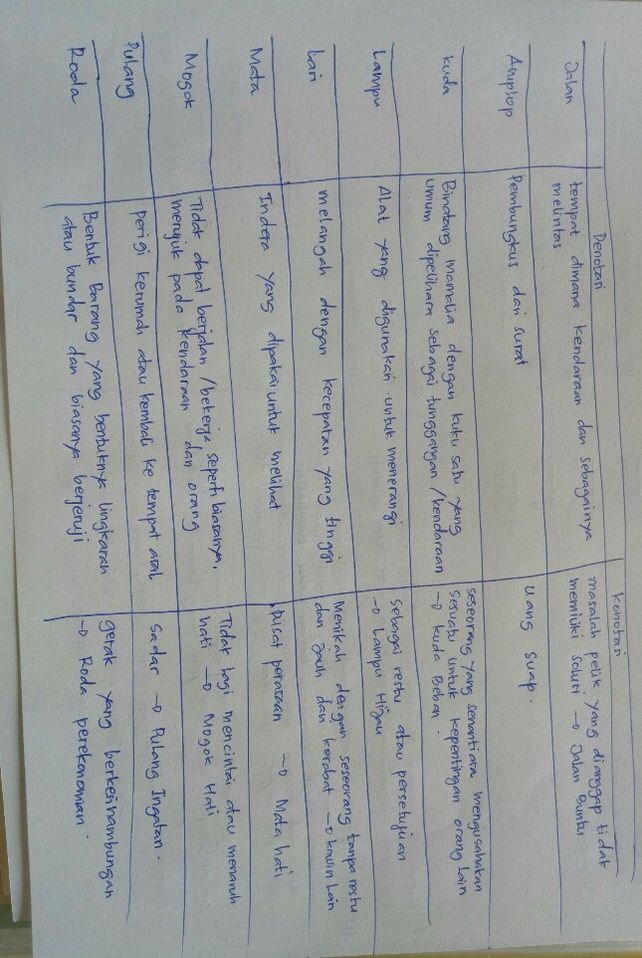 Denotasi
Konotasi
Jalan
tempat dimana kendaraan dan sebagainya
melintas
masalah pelik yang dianggap tidak
memiliki solusi → Jalan Buntu
Amplop
Pembungkus dari surat
uang suap.
kuda
Binatang mamalia dengan kuku satu yang
umum dipelihara sebagai tunggangan/kendaraan
seseorang yang senantiasa mengusahakan
sesuatu untuk kepentingan orang lain
→ kuda Beban.
Lampu
Alat yang digunakan untuk menerangi
sebagai restu atau persetujuan
→ Lampu Hijau
Lari
melangah dengan kecepatan yang tinggi
Menikah dengan seseorang tanpa restu
dan jauh dari kerabat → kawin Lari
Mata
Indera yang dipakai untuk melihat
Pusat perasaan → Mata hati
Mogok
Tidak dapat berjalan/bekerja seperti biasanya,
merujuk pada kendaraan dan orang
Tidak lagi mencintai atau menaruh
hati → Mogok Hati
Pulang
pergi kerumah atau kembali ke tempat asal
sadar → Pulang Ingatan.
Roda
Bentuk Barang yang bentuknya lingkaran
atau bundar dan biasanya berjeruji
gerak yang berkesinambungan
→ Roda perekonomian.